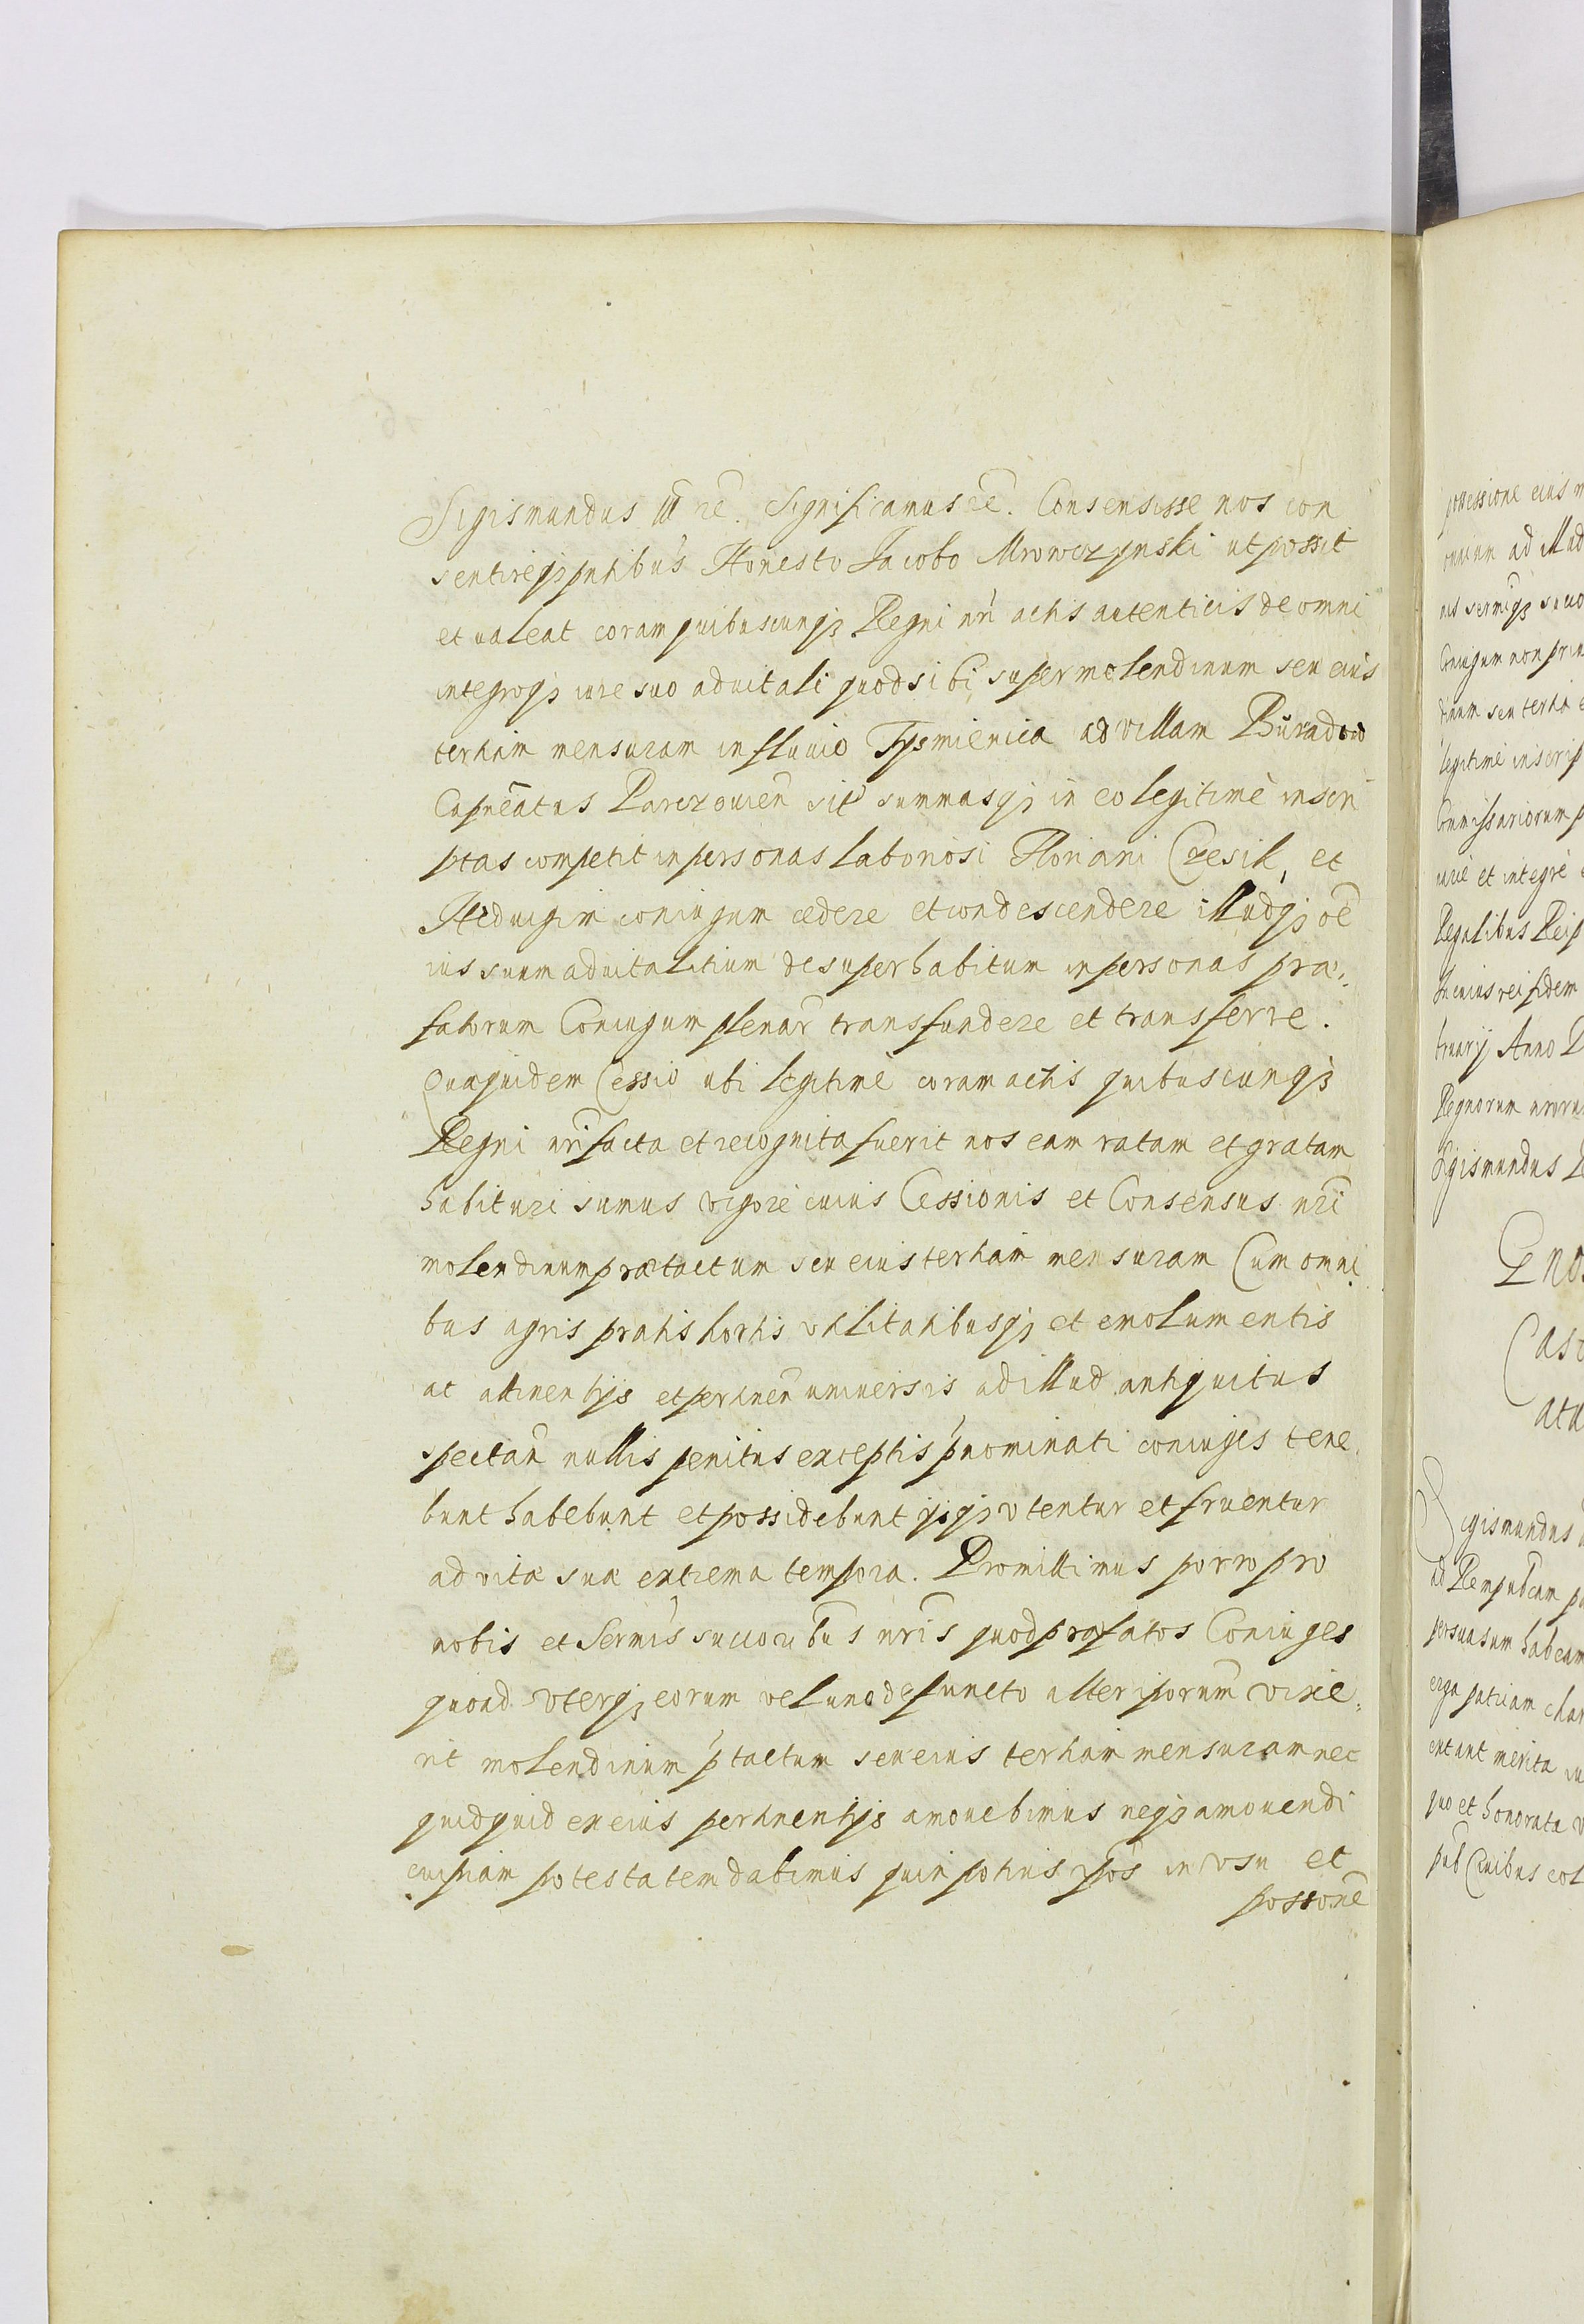 Sigismundus III rē. Significamus rē. Consensisse nos con
sentireqȝ pntibus Honesto Jacobo Mrowczynski ut possit
et ualeat coram quibuscunqȝ Regni nri actis autenticis de omni
integroqȝ iure suo aduitali quod sibi super molendinum seu eius
tertiam mensuram in fluuio Tysmienica ad villam
Capneatus Parczouien sit summasqȝ in eo legitimè inscri
ptas competit in personas laboriosi Floriani et
Heduigim coniugum cedere et condescendere illudqȝ oē
ius suum aduitalitium desuper habitum in personas præ,,
fatorum Coniugum plenar transfundere et transferre.
Quæquidem Cessio ubi legitimè coram actis quibuscunqȝ
Regni nri facta et recognita fuerit nos eam ratam et gratam
habituri sumus vigore cuius Cessionis et Consensus nri
molendinum prætactum seu eius tertiam mensuram Cum omni
bus agris pratis hortis vtilitatibusqȝ et emolumentis
ac attinentijs et pertinen uniuersis ad illud antiquitus
spectan nullis penitus exceptis pnominati coniuges tene,
bunt habebunt et possidebunt ijsqȝ vtentur et fruentur
ad vitæ suæ extrema tempora. Promittimus porro pro
nobis et Sermis succoribus nris quod præfatos Coniuges
quoad vterqȝ eorum vel uno defuncto alter ipsorum vixe,,
rit molendinum ptactum seu eius tertiam mensuram nec
quidquid ex eius pertinentijs amouebimus neqȝ amouendi
cuipiam potestatem dabimus quin potius ipsos in vsu et
possone
possessione eius
ad illud
Coniugum non
seu tertia
legitimè inscrip
Commissariorum p
et integrè
Regalibus Reip
In cuius rei fidem
bruarij Anno D
Regnorum nroru
Sigismundus
Cas
Sigismundus
ad Rempubcam
persuasum habeam
erga patriam char
merita
quo et honorata